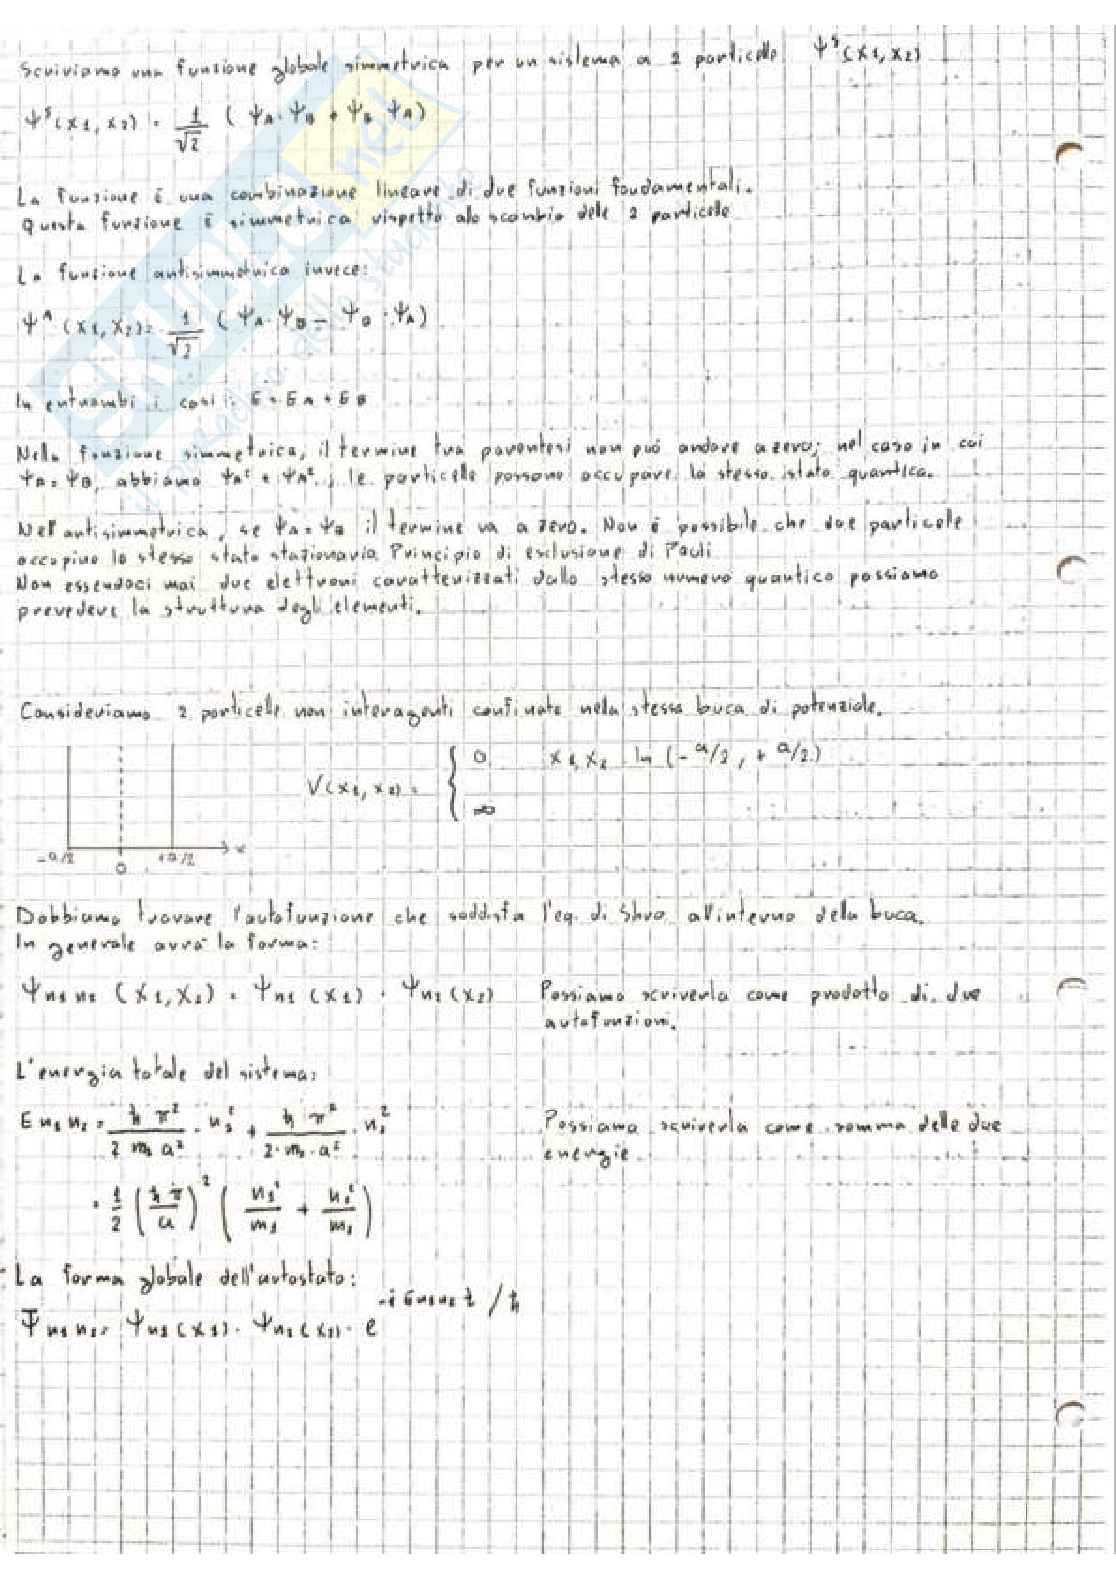 Scriviamo una funzione globale simmetrica per un sistema a 2 particelle ψˢ(x1, x2)
ψˢ(x1, x2) = 1/√2 ( ψA · ψB + ψB ψA)
La funzione è una combinazione lineare di due funzioni fondamentali.
Questa funzione è simmetrica rispetto alo scambio delle 2 particelle
La funzione antisimmetrica invece:
ψᴬ (x1, x2) = 1/√2 ( ψA · ψB - ψB · ψA)
In entrambi i casi : E = EA + EB
Nella funzione simmetrica, il termine tra parentesi non può andare a zero; nel caso in cui
ψA = ψB, abbiamo ψA² + ψA² ; le particelle possono occupare lo stesso stato quantico.
Nell'antisimmetrica, se ψA = ψB il termine va a zero. Non è possibile che due particelle
occupino lo stesso stato stazionario. Principio di esclusione di Pauli
Non essendoci mai due elettroni caratterizzati dallo stesso numero quantico possiamo
prevedere la struttura degli elementi.
Consideriamo 2 particelle non interagenti confinate nella stessa buca di potenziale.
V(x1, x2) = { 0 x1, x2 in (- a/2 , + a/2)
∞
-a/2 0 +a/2 x
Dobbiamo trovare l'autofunzione che soddisfa l'eq. di Shro. all'interno della buca.
In generale avrà la forma:
ψn1 n2 (x1, x2) = ψn1 (x1) · ψn2 (x2) Possiamo scriverla come prodotto di due
autofunzioni.
L'energia totale del sistema:
E n1 n2 = ħ π² / 2 m1 a² · n1² + ħ π² / 2 · m2 · a² · n2² Possiamo scriverla come somma delle due
energie
= 1/2 (ħ π / a)² ( n1²/m1 + n2²/m2 )
La forma globale dell'autostato:
Ψ n1 n2 = ψn1 (x1) · ψn2 (x2) · e -i En1n2 t / ħ